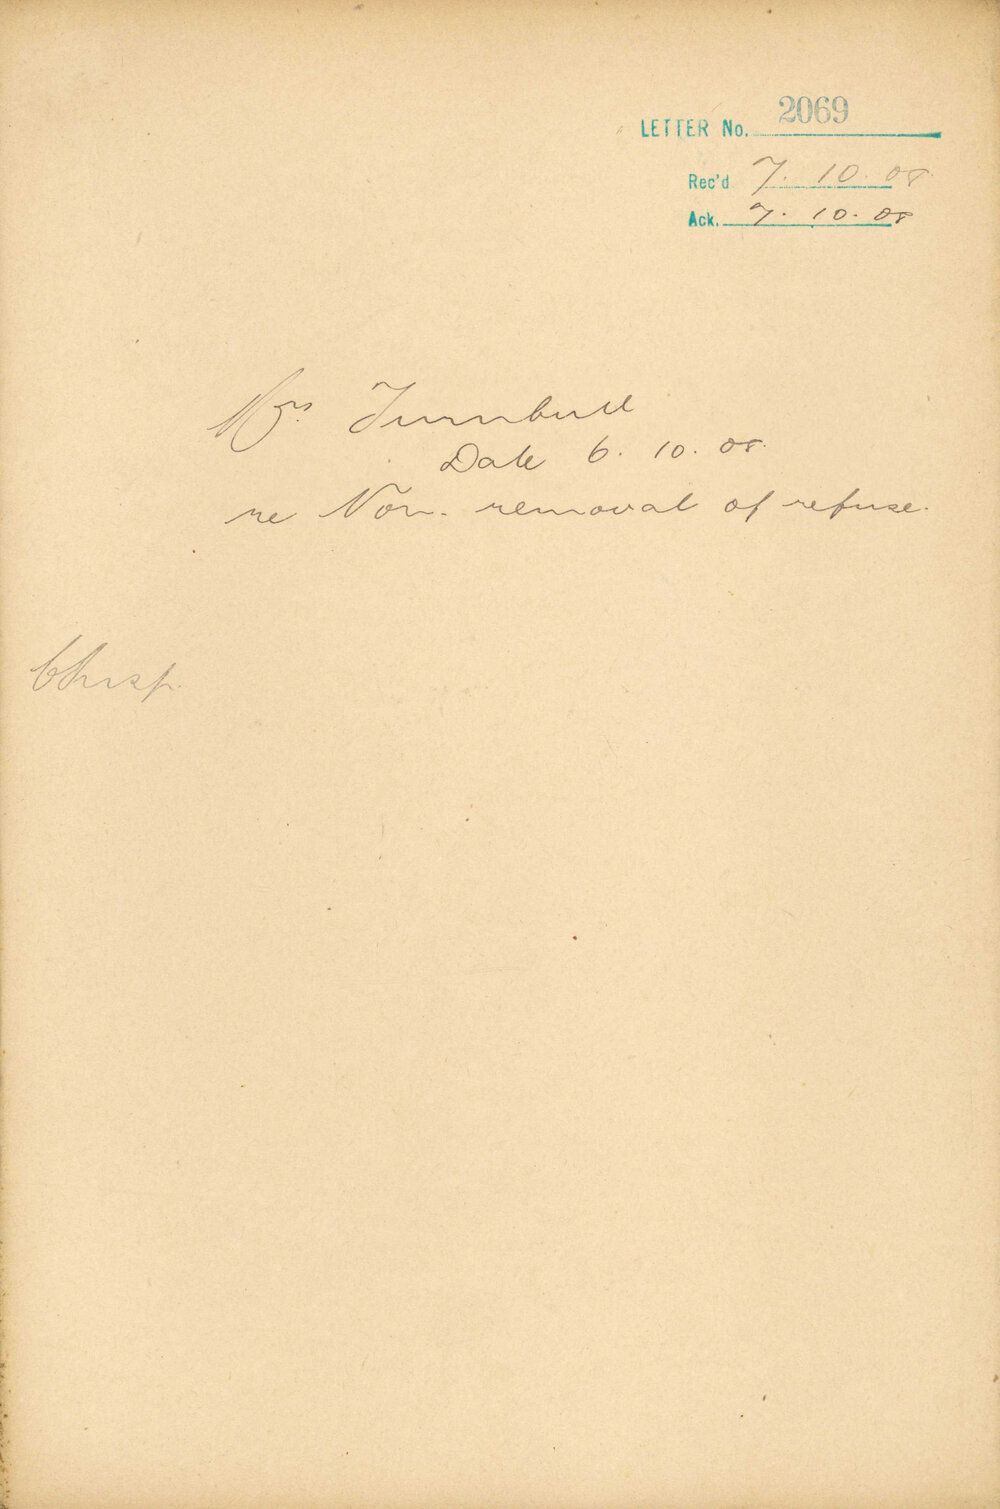 LETTER No. 2069
Rec'd 7. 10. 08.
Ack. 7. 10. 08
Mrs Turnbull
Date 6. 10. 08.
re Non. removal of refuse.